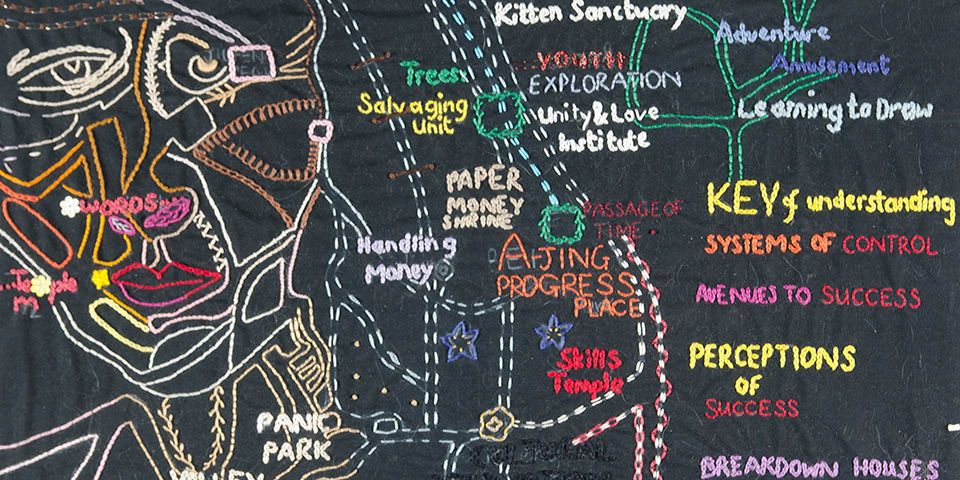 Kitten Sanctuary
Adventure
Amusement
Learning to Draw
Trees
YOUTH
EXPLORATION
Salvaging
unit
Unity & Love
Institute
PAPER
MONEY
SHRINE
PASSAGE OF
TIME
KEY of understanding
WORDS
Handling
Money
PROGRESS
PLACE
SYSTEMS OF CONTROL
Temple
AVENUES TO SUCCESS
Skills
Temple
PERCEPTIONS
OF
SUCCESS
PANIC
PARK
VALLEY
BREAKDOWN HOUSES